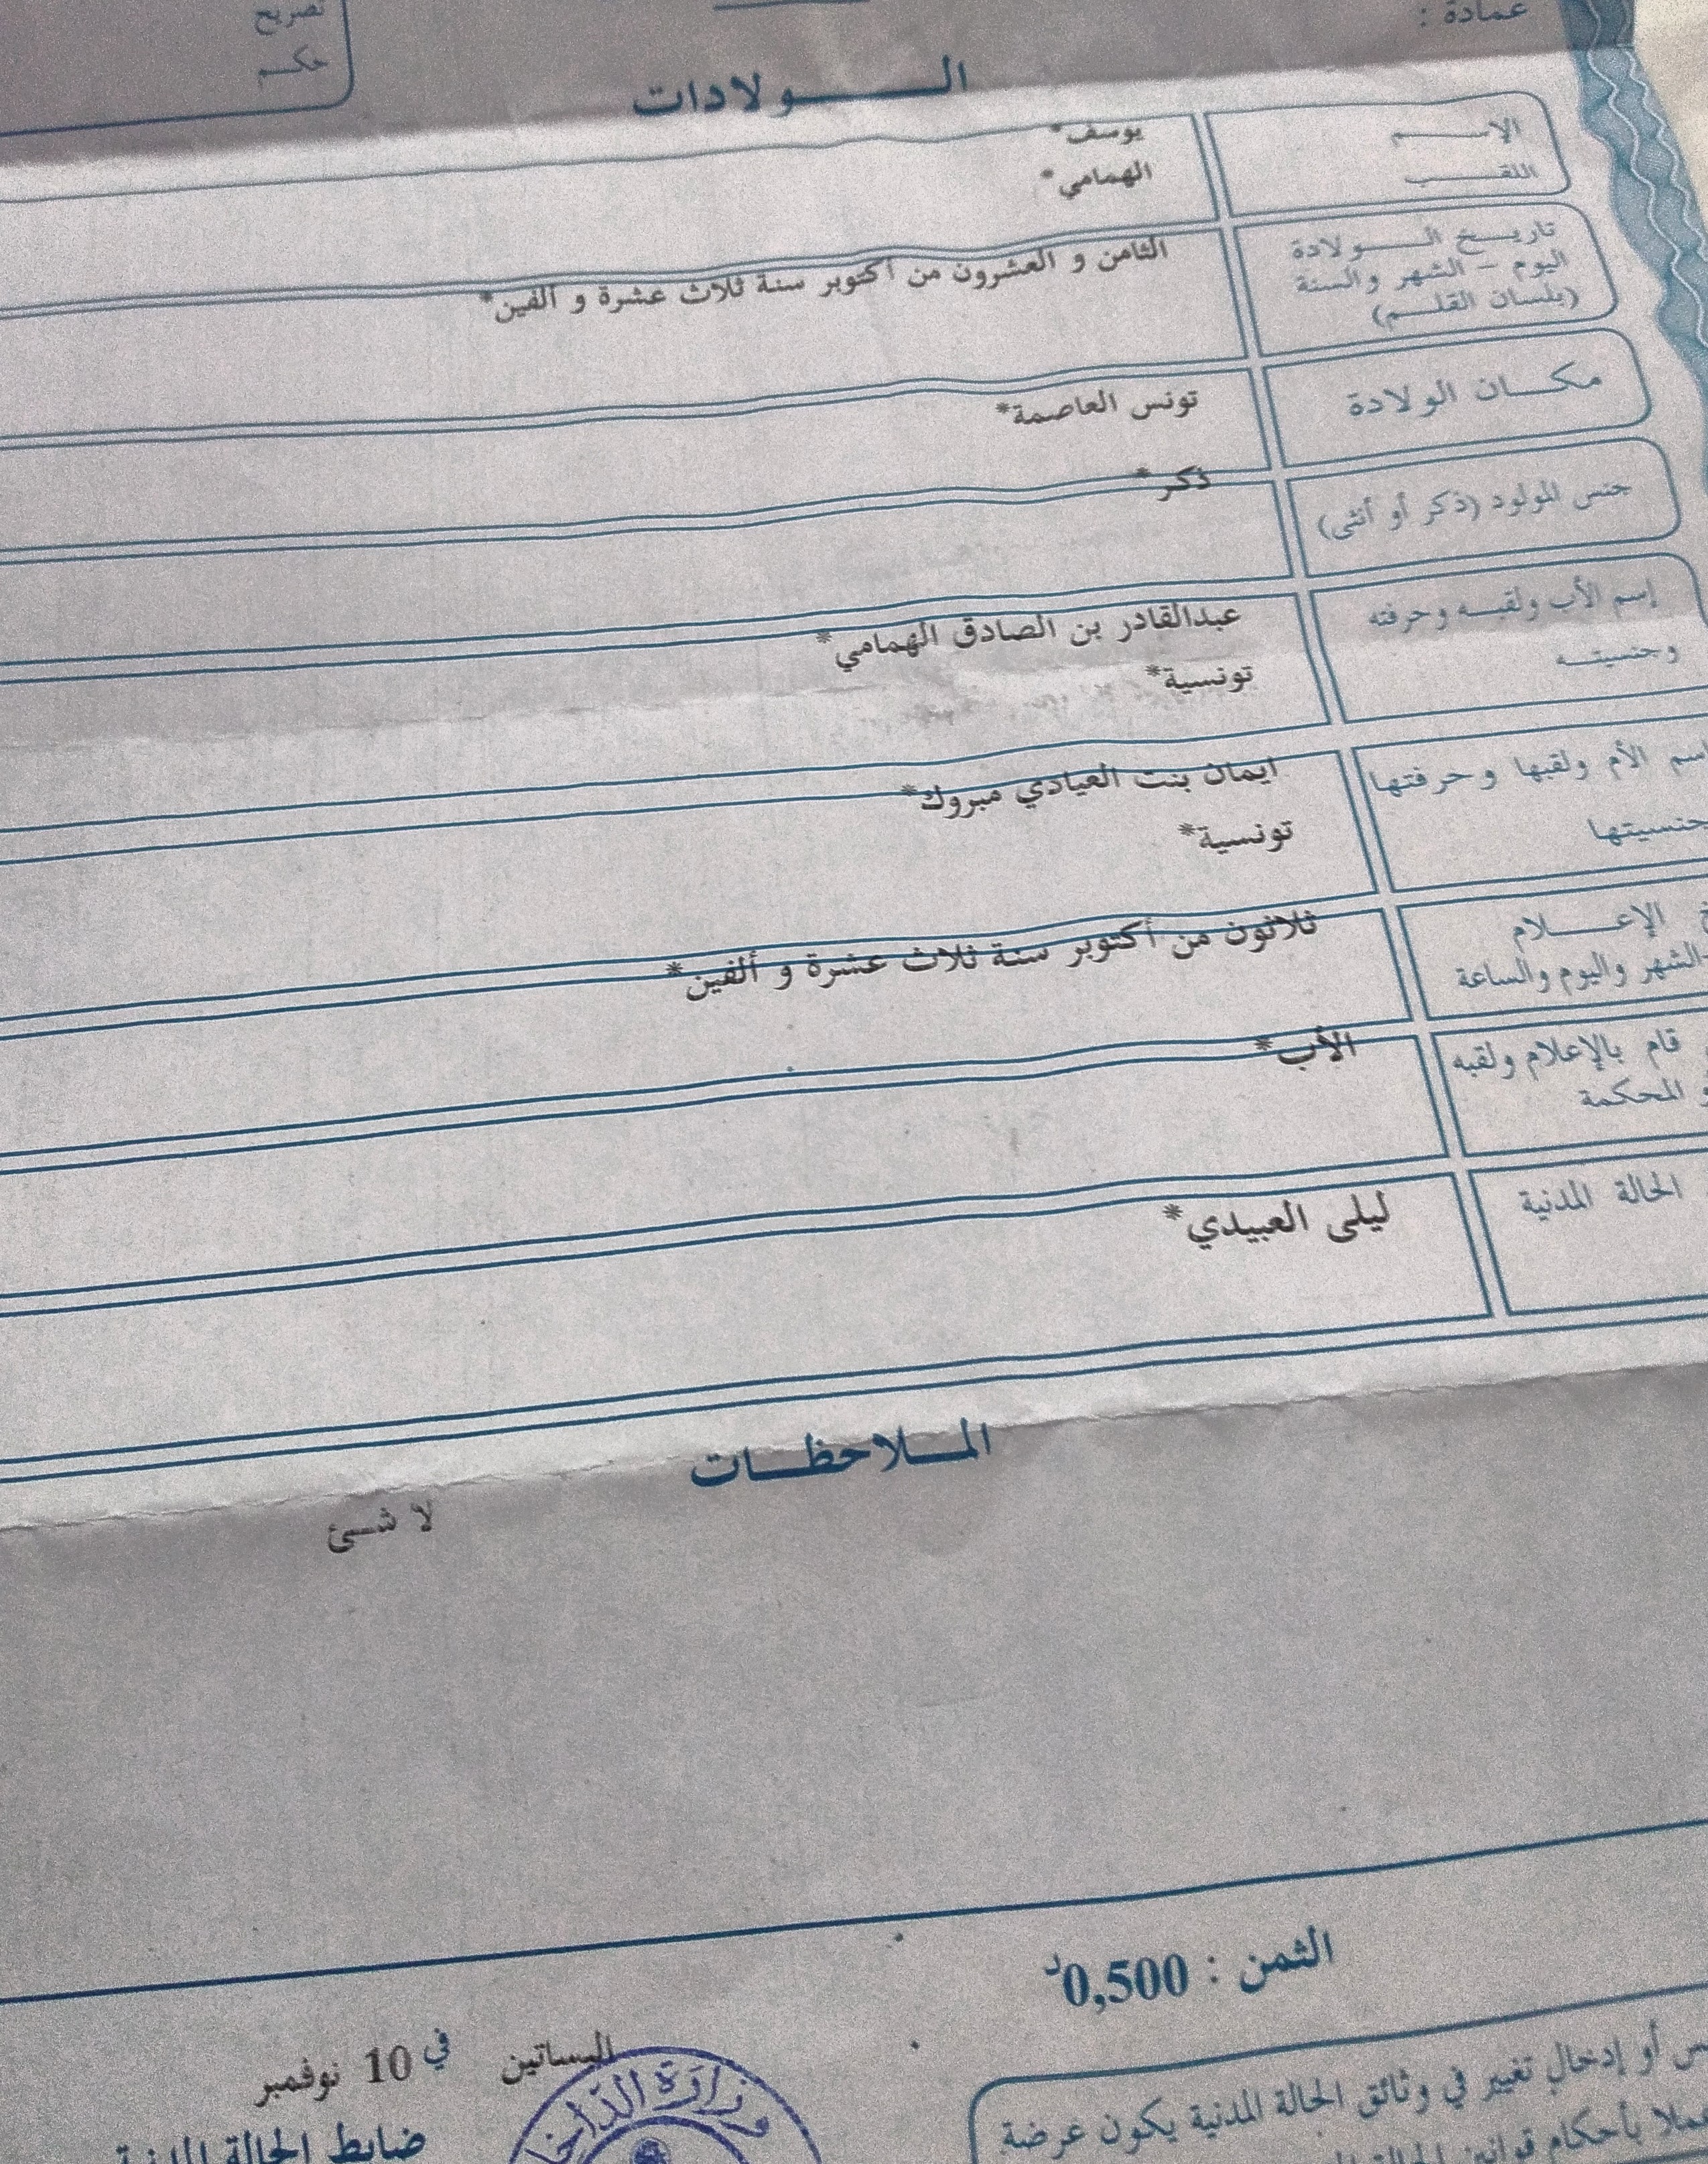 عمادة :
تصريح
حكم
الـــولادات
الإســـم
يوسف*
اللقـــب
الهمامي*
تاريـخ الـــولادة
اليوم - الشهر والسنة
(بلسان القلـم)
الثامن و العشرون من أكتوبر سنة ثلاث عشرة و ألفين*
مكـان الولادة
تونس العاصمة*
جنس المولود (ذكر أو أنثى)
ذكر*
إسم الأب ولقبـه وحرفته
وجنسيتـه
عبدالقادر بن الصادق الهمامي*
تونسية*
اسم الأم ولقبها وحرفتها
جنسيتها
ايمان بنت العيادي مبروك*
تونسية*
الإعـــلام
الشهر واليوم والساعة
ثلاثون من أكتوبر سنة ثلاث عشرة و ألفين*
قام بالإعلام ولقبه
المحكمة
الأب*
الحالة المدنية
ليلى العبيدي*
المـلاحظـات
لا شـئ
الثمن : 0,500د
البساتين في 10 نوفمبر
ضابط الحالة المدنية
وزارة الداخ
أو إدخال تغيير في وثائق الحالة المدنية يكون عرضة
بأحكام قوانين الحالة